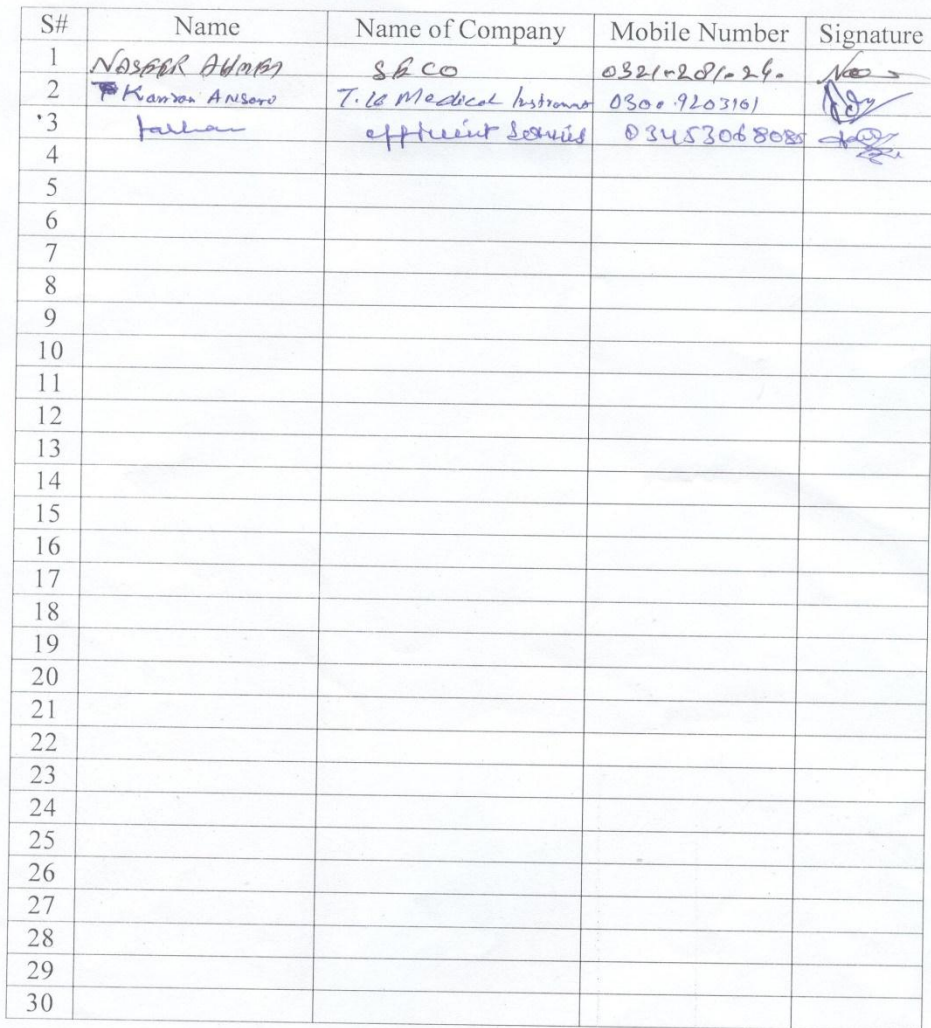 S# Name Name of Company Mobile Number Signature
1 NASEER AHMED SECO
2 Kamran ANSARI T.K Medical Instrument 0300.9203161
3 farhan efficient Services 03453068085
4
5
6
7
8
9
10
11
12
13
14
15
16
17
18
19
20
21
22
23
24
25
26
27
28
29
30